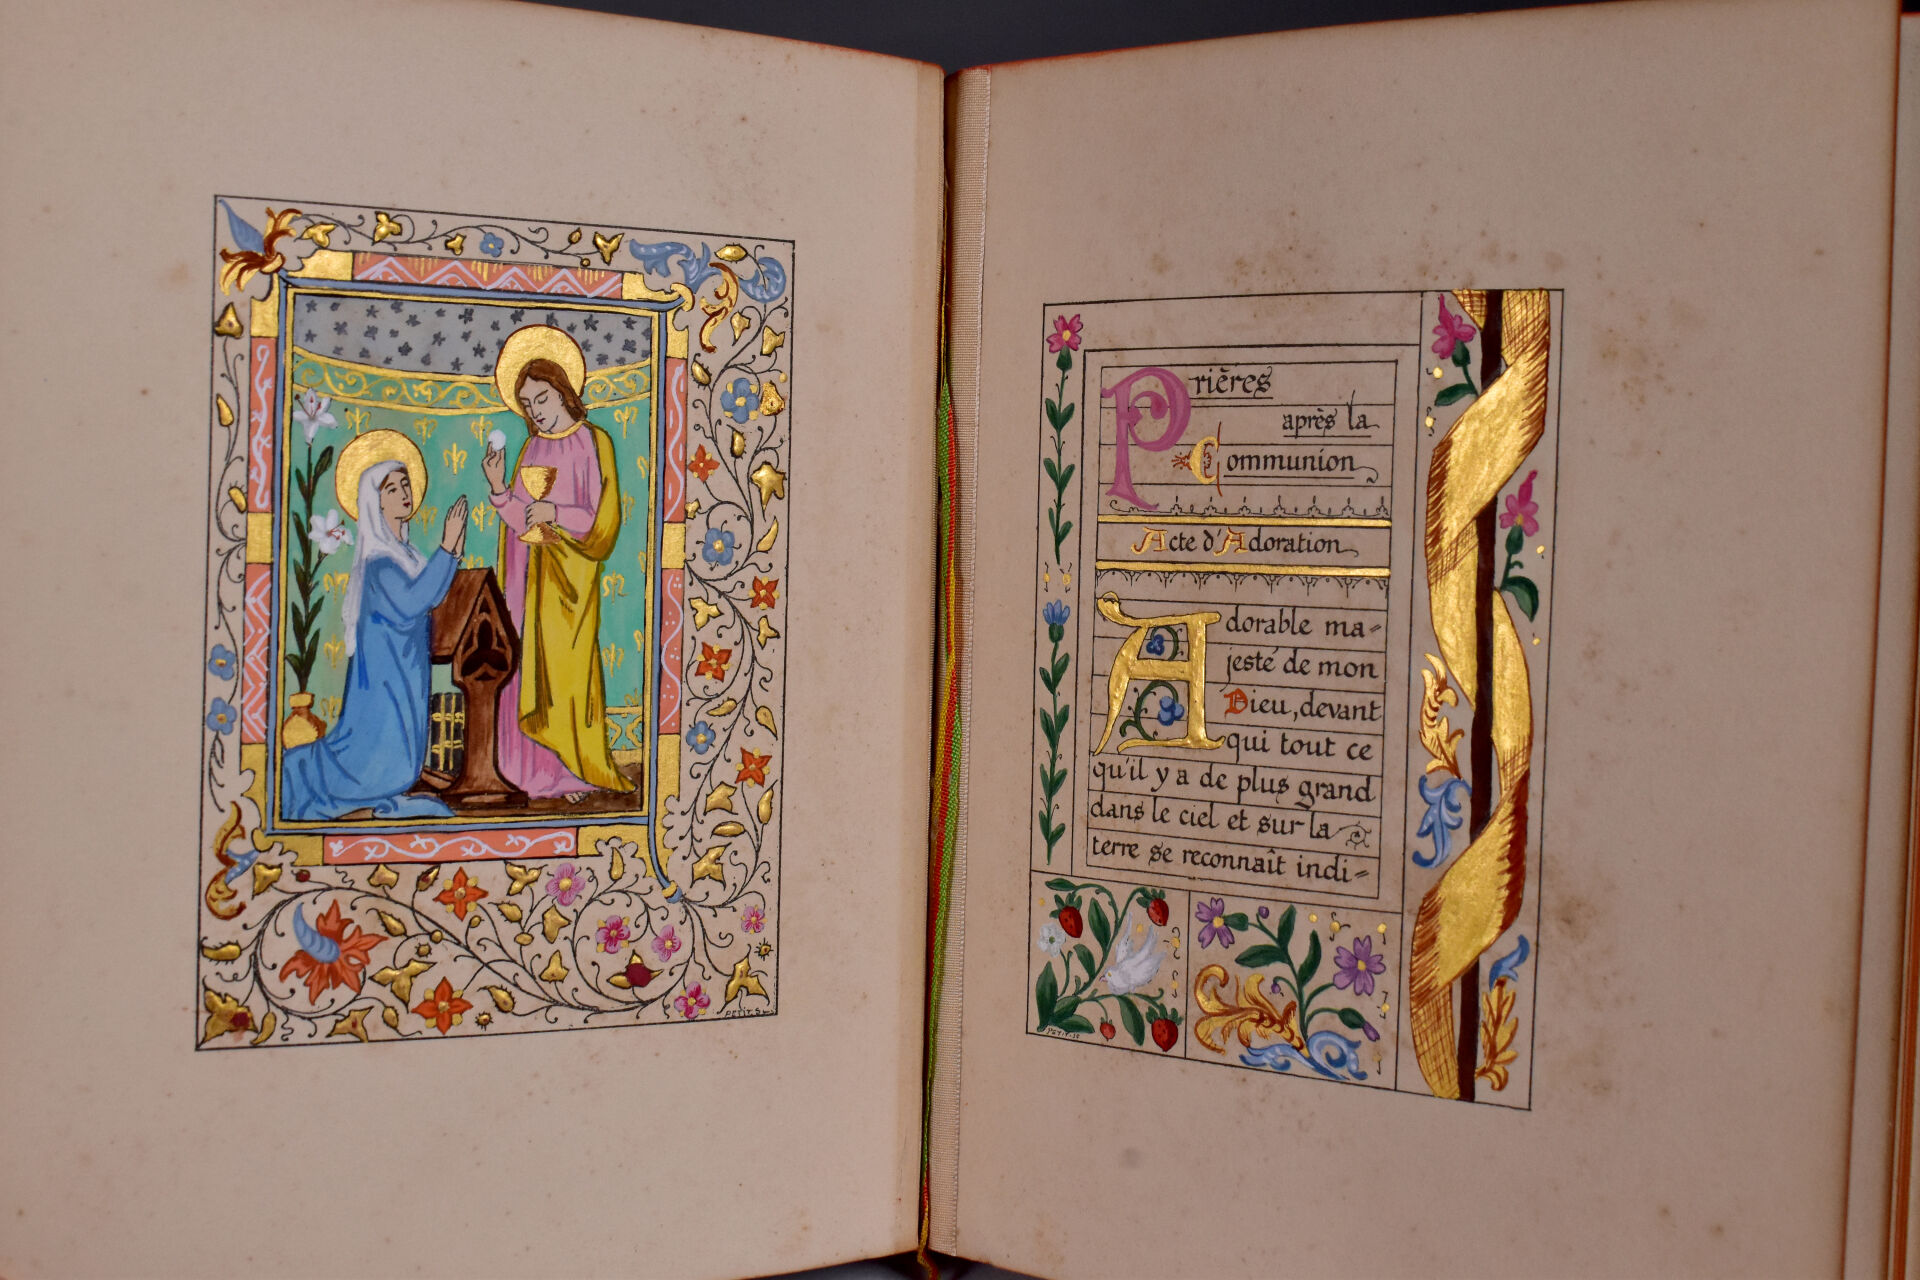 Prières
après la
Communion
Acte d'Adoration
Adorable ma=
jesté de mon
Dieu, devant
qui tout ce
qu'il y a de plus grand
dans le ciel et sur la
terre se reconnaît indi=
PETIT.
PETIT.